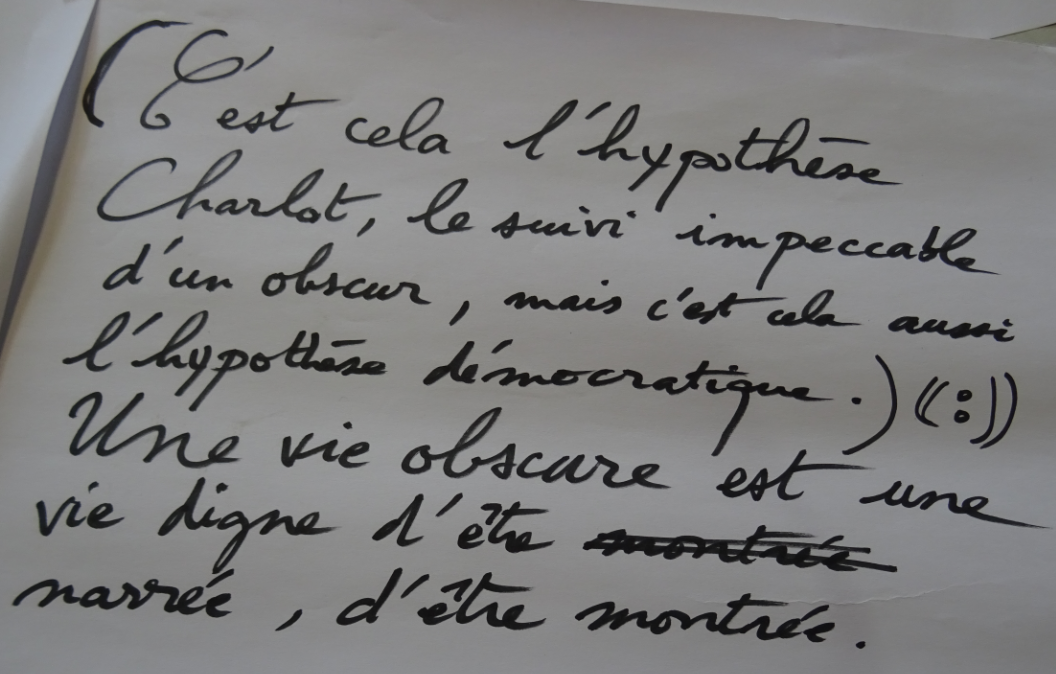 (C'est cela l'hypothèse
Charlot, le suivi impeccable
d'un obscur, mais c'est cela aussi
l'hypothèse démocratique.) ((:))
Une vie obscure est une
vie digne d'être montrée
narrée, d'être montrée.